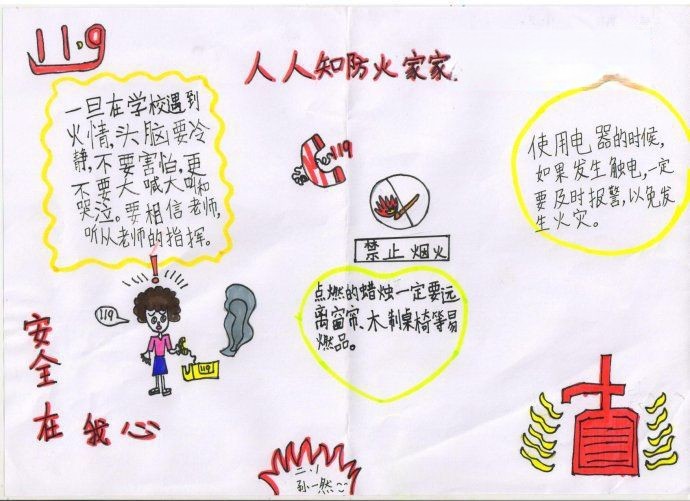 119
人人知防火家家
一旦在学校遇到
火情，头脑要冷
静，不要害怕，更
不要大喊大叫和
哭泣。要相信老师，
听从老师的指挥。
119
禁止烟火
使用电器的时候，
如果发生触电，一定
要及时报警，以免发
生火灾。
点燃的蜡烛一定要远
离窗帘、木制桌椅等易
燃品。
！
119
119
安全在我心
二.1
孙一然